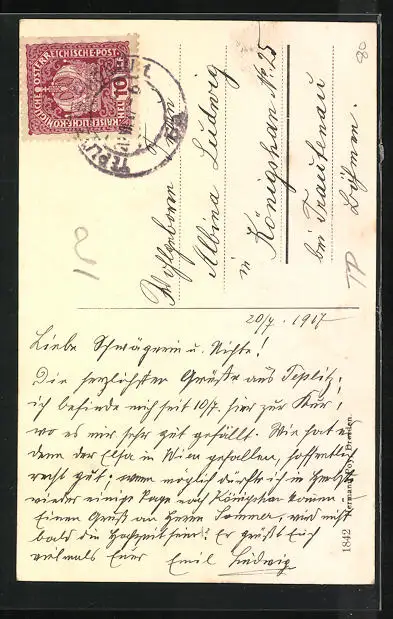 KAISERLICHE KÖNIGLICHE ÖSTERREICHISCHE POST
10
TEPLITZ
Wohlgeborn
Albina Ludwig
in Königshan Nr. 25
bei Trautenau
Böhmen.
20/7. 1917
Liebe Schwägerin u. Nichte!
Die herzlichsten Grüße aus Teplitz,
ich befinde mich seit 10/7. hier zur Kur,
wo es mir sehr gut gefällt. Wie hat es
denn der Elsa in Wien gefallen, hoffentlich
recht gut; wenn möglich dürfte ich im Herbste
wieder einige Tage nach Königshan kommen.
Einen Gruß an Herrn Sommer, wird nicht
bald die Hochzeit sein? Es grüßt Euch
vielmals Euer Emil Ludwig
1842 Hermann Poy, Dresden.
80